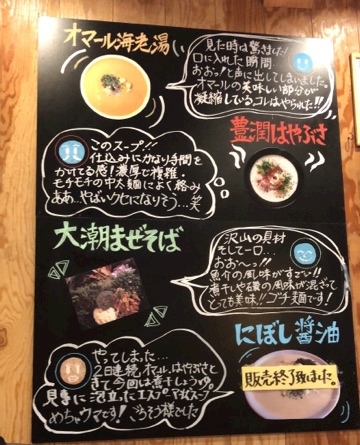 オマール海老湯
見た時は驚きました!
口に入れた瞬間…
おおっ!と声に出してしまいました。
オマールの美味しい部分が
凝縮しているコレはやられた!!
豊潤はやぶさ
このスープ!!
仕込みにかなり手間を
かけてる感!濃厚で複雑。
モチモチの中太麺によく絡み
ああ…やばいクセになりそう…笑
大潮まぜそば
沢山の具材
そして一口…
おお〜っ!!
魚介の風味がすごい!!
煮干しや磯の風味が混ざって
とっても美味!!ゴチ麺です!
にぼし醤油
販売終了致しました。
やってしまった…
2日連続、オマール、はやぶさと
きて今回は煮干しょうゆ。
見事に泡立ったエスプーマ式スープ
めちゃウマです!ごちそう様でした